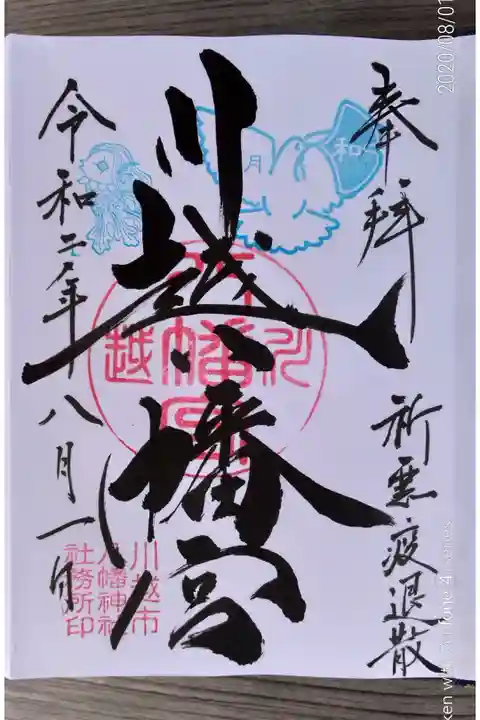 奉拝
祈悪疫退散
川越八幡宮
令和二年八月一日
和
月
川越
八幡宮
川越市
八幡神社
社務所印
2020/08/01